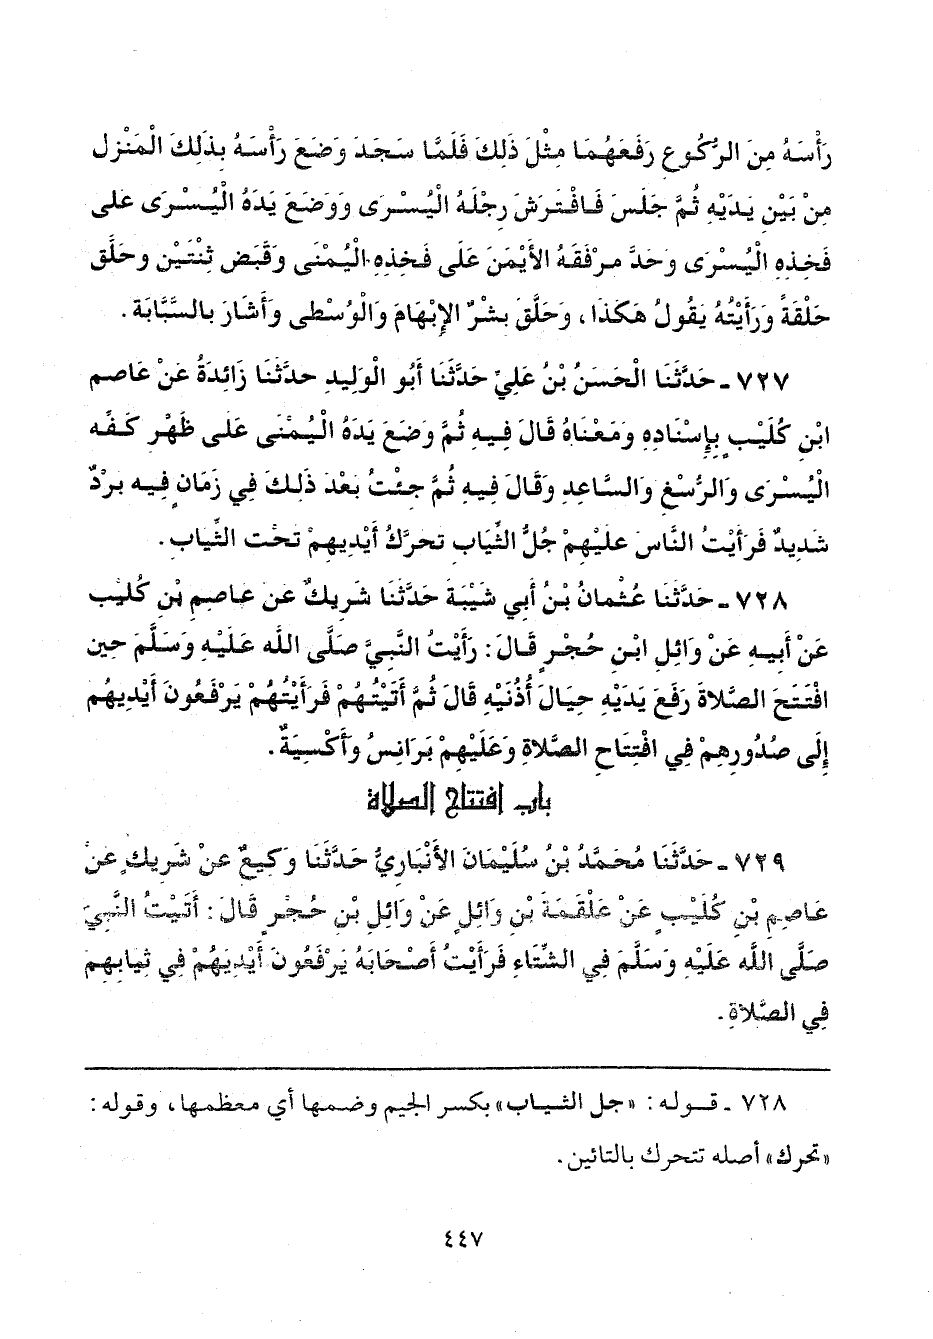 رَأْسَهُ مِنَ الرُّكُوعِ رَفَعَهُمَا مِثْلَ ذَلِكَ فَلَمَّا سَجَدَ وَضَعَ رَأْسَهُ بِذَلِكَ الْمَنْزِلِ
مِنْ بَيْنِ يَدَيْهِ ثُمَّ جَلَسَ فَافْتَرَشَ رِجْلَهُ الْيُسْرَى وَوَضَعَ يَدَهُ الْيُسْرَى عَلَى
فَخِذِهِ الْيُسْرَى وَحَدَّ مِرْفَقَهُ الأَيْمَنَ عَلَى فَخِذِهِ الْيُمْنَى وَقَبَضَ ثِنْتَيْنِ وَحَلَّقَ
حَلْقَةً وَرَأَيْتُهُ يَقُولُ هَكَذَا، وَحَلَّقَ بِشْرٌ الإِبْهَامَ وَالْوُسْطَى وَأَشَارَ بِالسَّبَّابَةِ.
٧٢٧ ـ حَدَّثَنَا الْحَسَنُ بْنُ عَلِيٍّ حَدَّثَنَا أَبُو الْوَلِيدِ حدَّثَنَا زَائِدَةُ عَنْ عَاصِمِ
ابْنِ كُلَيْبٍ بِإِسْنَادِهِ وَمَعْنَاهُ قَالَ فِيهِ ثُمَّ وَضَعَ يَدَهُ الْيُمْنَى عَلَى ظَهْرِ كَفِّهِ
الْيُسْرَى وَالرُّسْغِ وَالسَّاعِدِ وَقَالَ فِيهِ ثُمَّ جِئْتُ بَعْدَ ذَلِكَ فِي زَمَانٍ فِيهِ بَرْدٌ
شَدِيدٌ فَرَأَيْتُ النَّاسَ عَلَيْهِمْ جُلُّ الثِّيَابِ تَحَرَّكُ أَيْدِيهِمْ تَحْتَ الثِّيَابِ.
٧٢٨ ـ حَدَّثَنَا عُثْمَانُ بْنُ أَبِي شَيْبَةَ حَدَّثَنَا شَرِيكٌ عَن عَاصِمِ بْنِ كُلَيْبٍ
عَنْ أَبِيهِ عَنْ وَائِلِ ابْنِ حُجْرٍ قَالَ: رَأَيْتُ النَّبِيَّ صَلَّى الله عَلَيْهِ وَسَلَّمَ حِينَ
افْتَتَحَ الصَّلَاةَ رَفَعَ يَدَيْهِ حِيَالَ أُذُنَيْهِ قَالَ ثُمَّ أَتَيْتُهُمْ فَرَأَيْتُهُمْ يَرْفَعُونَ أَيْدِيهُمْ
إِلَى صُدُورِهِمْ فِي افْتِتَاحِ الصَّلَاةِ وَعَلَيْهِمْ بَرَانِسُ وَأَكْسِيَةٌ.
باب افتتاح الصلاة
٧٢٩ ـ حَدَّثَنَا مُحَمَّدُ بْنُ سُلَيْمَانَ الأَنْبَارِيُّ حَدَّثَنَا وَكِيعٌ عَنْ شَرِيكٍ عَنْ
عَاصِمِ بْنِ كُلَيْبٍ عَنْ عَلْقَمَةَ بْنِ وَائِلٍ عَنْ وَائِلِ بْنِ حُجْرٍ قَالَ: أَتَيْتُ النَّبِيَّ
صَلَّى اللَّه عَلَيْهِ وَسَلَّمَ فِي الشِّتَاءِ فَرَأَيْتُ أَصْحَابَهُ يَرْفَعُونَ أَيْدِيَهُمْ فِي ثِيَابِهِمْ
فِي الصَّلَاةِ.
٧٢٨ ـ قوله: «جل الثياب» بكسر الجيم وضمها أي معظمها، وقوله:
«تحرك» أصله تتحرك بالتائين.
٤٤٧